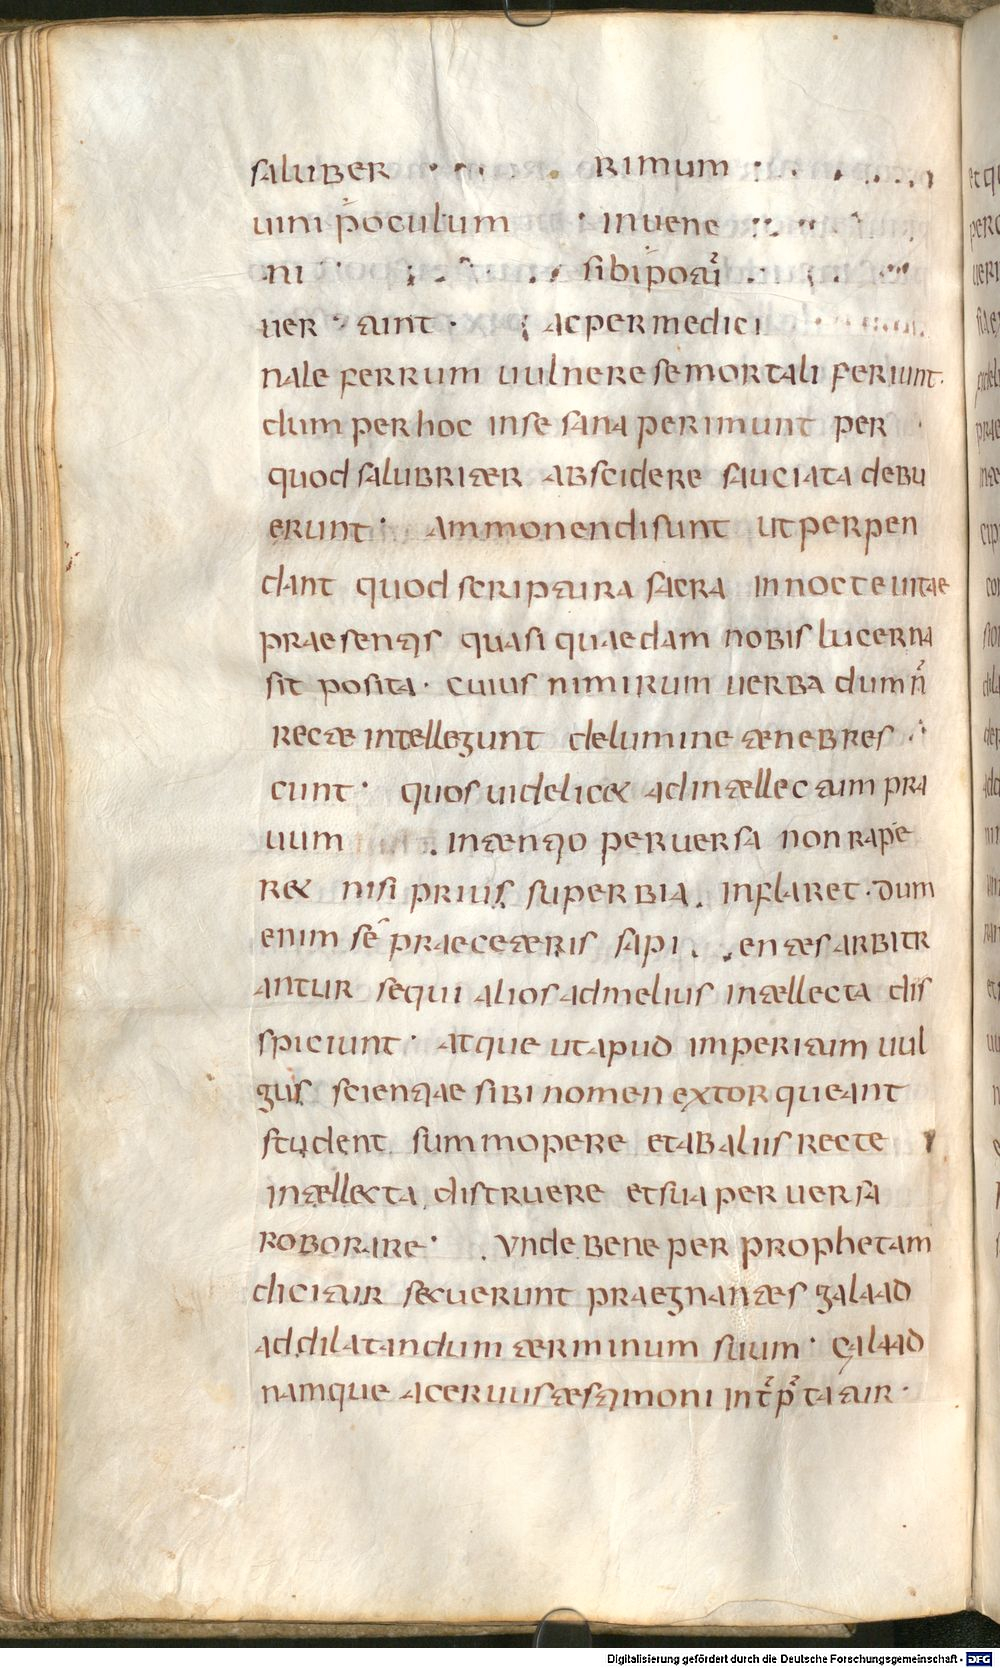 saluber rimum
uini poculum inuene
ni sibi potu
uer tunt ac per medici
nale ferrum uulnere se mortali feriunt.
dum per hoc in se sana perimunt per
quod salubriter abscidere sauciata debu
erunt· Ammonendi sunt ut perpen
dant quod scriptura sacra in nocte uitae
praesentis quasi quaedam nobis lucerna
sit posita· cuius nimirum uerba dum n̄
recte intellegunt de lumine tenebres
cunt· quos uidelicet ad intellectum pra
uum intentio peruersa non rape
ret nisi prius superbia inflaret· dum
enim se praeceteris sapi entes arbitr
antur sequi alios ad melius intellecta dis
spiciunt· atque ut apud imperitum uul
gus scientiae sibi nomen extorqueant
student summopere et ab aliis recte
intellecta distruere et sua peruersa
roborare· Vnde bene per prophetam
dicitur secuerunt praegnantes galaad
ad dilatandum terminum suum· Galaad
namque aceruus testimoni int̄p̄tatur·
Digitalisierung gefördert durch die Deutsche Forschungsgemeinschaft - DFG